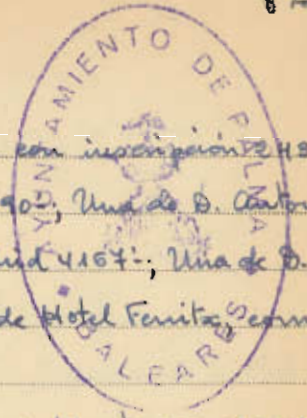 AYUNTAMIENTO DE PALMA
BALEARES
con inscripción 242
90-, Una de D. Anto
4167-; Una de D.
de Hotel Fenitx, com